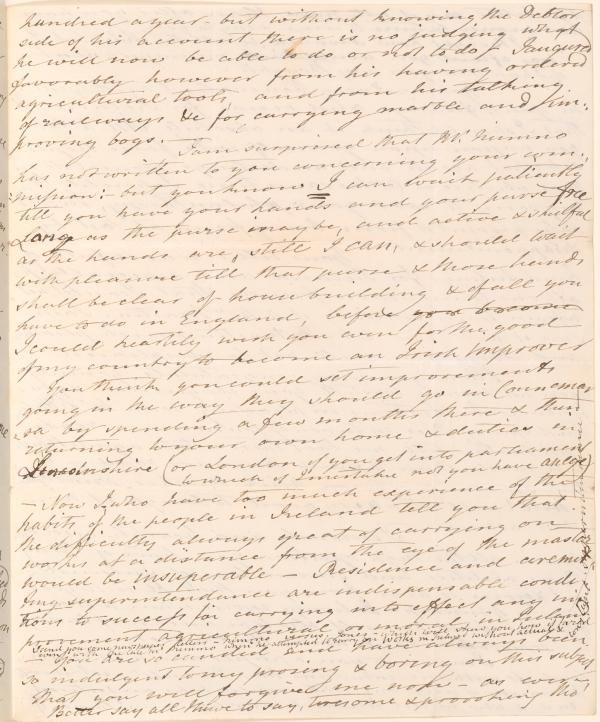 hundred a year - but without knowing the Debtor
side of his account there is no judging what
he will now be able to do or not to do - I augured
favorably however from his having ordered
agricultural tools, and from his talking
of railways &c for carrying marble and im-
proving bogs.
I am surprised that Mr. Nimmo
has not written to you concerning your com-
mission: but you know I can wait patiently
till you have your hands and your purse free
Long as the purse may be, and active & skilful
as the hands are, still I can, & should wait
with pleasure till that purse & those hands
shall be clear of housebuilding & of all you
have to do in England, before you become
I could heartily wish you even for the good
of my country to become an Irish Improver
You think you could set improvements
going in the way they should go in Connemar
ra by spending a few months there & then
returning to your own home & duties in
Lincolnshire (or London if you get into parliament
which if I mistake not you have an eye)
- Now I, who have too much experience of the
habits of the people in Ireland tell you that
the difficulty always great of carrying on
works at a distance from the eye of the master
would be insuperable - Residence and unremit
ting superintendance are indispensable condi
tions to success for carrying into effect any im
provement agricultural or moral in Ireland
I send you some newspaper letters - Nimmo versus Jones - which will show you how
when he attempted to carry on works without
You are so candid and have always been
so indulgent to my prosing & boring on this subject
that you will forgive me now - as ever
Better say all I have to say, tiresome & provoking tho'